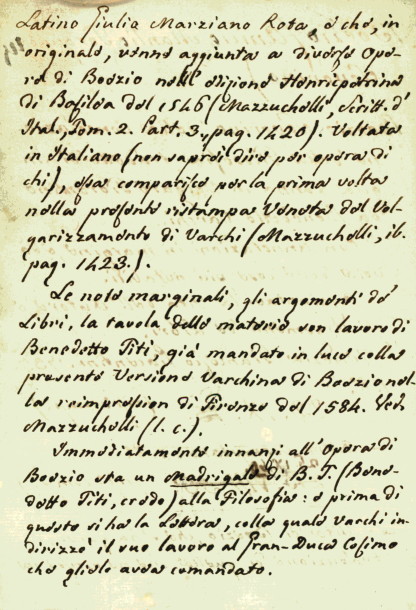 Latino Giulia Marziano Rota, e che, in
originale, venne aggiunta a diverse Ope-
re di Boezio nell'edizione Henricpetrina
di Basilea del 1546 (Mazzuchelli, Scritt. d'
Ital., Tom. 2. Part. 3., pag. 1420). Voltata
in Italiano (non saprei dire per opera di
chi), essa comparisce per la prima volta
nella presente ristampa Veneta del Vol-
garizzamento di Varchi (Mazzuchelli, ib.
pag. 1423.).
Le note marginali, gli argomenti de'
Libri, la tavola delle materie son lavoro di
Benedetto Titi, già mandato in luce colla
presente Versione Varchina di Boezio nel-
la reimpression di Firenze del 1584. Ved.
Mazzuchelli (l. c.).
Immediatamente innanzi all'Opera di
Boezio sta un Madrigale di B. T. (Bene-
detto Titi, credo) alla Filosofia: e prima di
questo si ha la Lettera, colla quale Varchi in-
dirizzò il suo lavoro al Gran-Duca Cosimo
che gliele avea comandato.